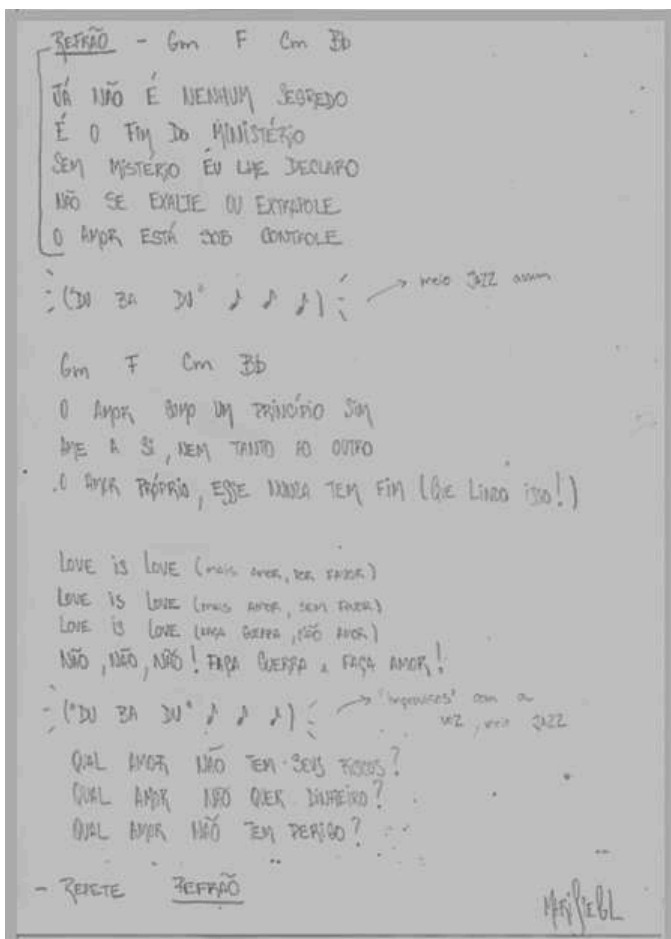 REFRÃO - Gm F Cm Bb
JÁ NÃO É NENHUM SEGREDO
É O FIM DO MINISTÉRIO
SEM MISTÉRIO EU LHE DECLARO
NÃO SE EXALTE OU EXTRAPOLE
O AMOR ESTÁ SOB CONTROLE
("DU BA DU" ♪ ♪ ♪) → meio JAZZ assim
Gm F Cm Bb
O AMOR COMO UM PRINCÍPIO SIM
AME A SI, NEM TANTO AO OUTRO
O AMOR PRÓPRIO, ESSE NUNCA TEM FIM (QUE LINDO ISSO!)
LOVE iS LOVE (mais AMOR, POR FAVOR)
LOVE iS LOVE (mais AMOR, SEM FAVOR)
LOVE iS LOVE (FAÇA GUERRA, NÃO AMOR)
NÃO, NÃO, NÃO! FAÇA GUERRA e FAÇA AMOR!
("DU BA DU" ♪ ♪ ♪) → "improvisos" com a
voz, meio JAZZ
QUAL AMOR NÃO TEM SEUS RISCOS?
QUAL AMOR NÃO QUER DINHEIRO?
QUAL AMOR NÃO TEM PERIGO?
- REPETE REFRÃO